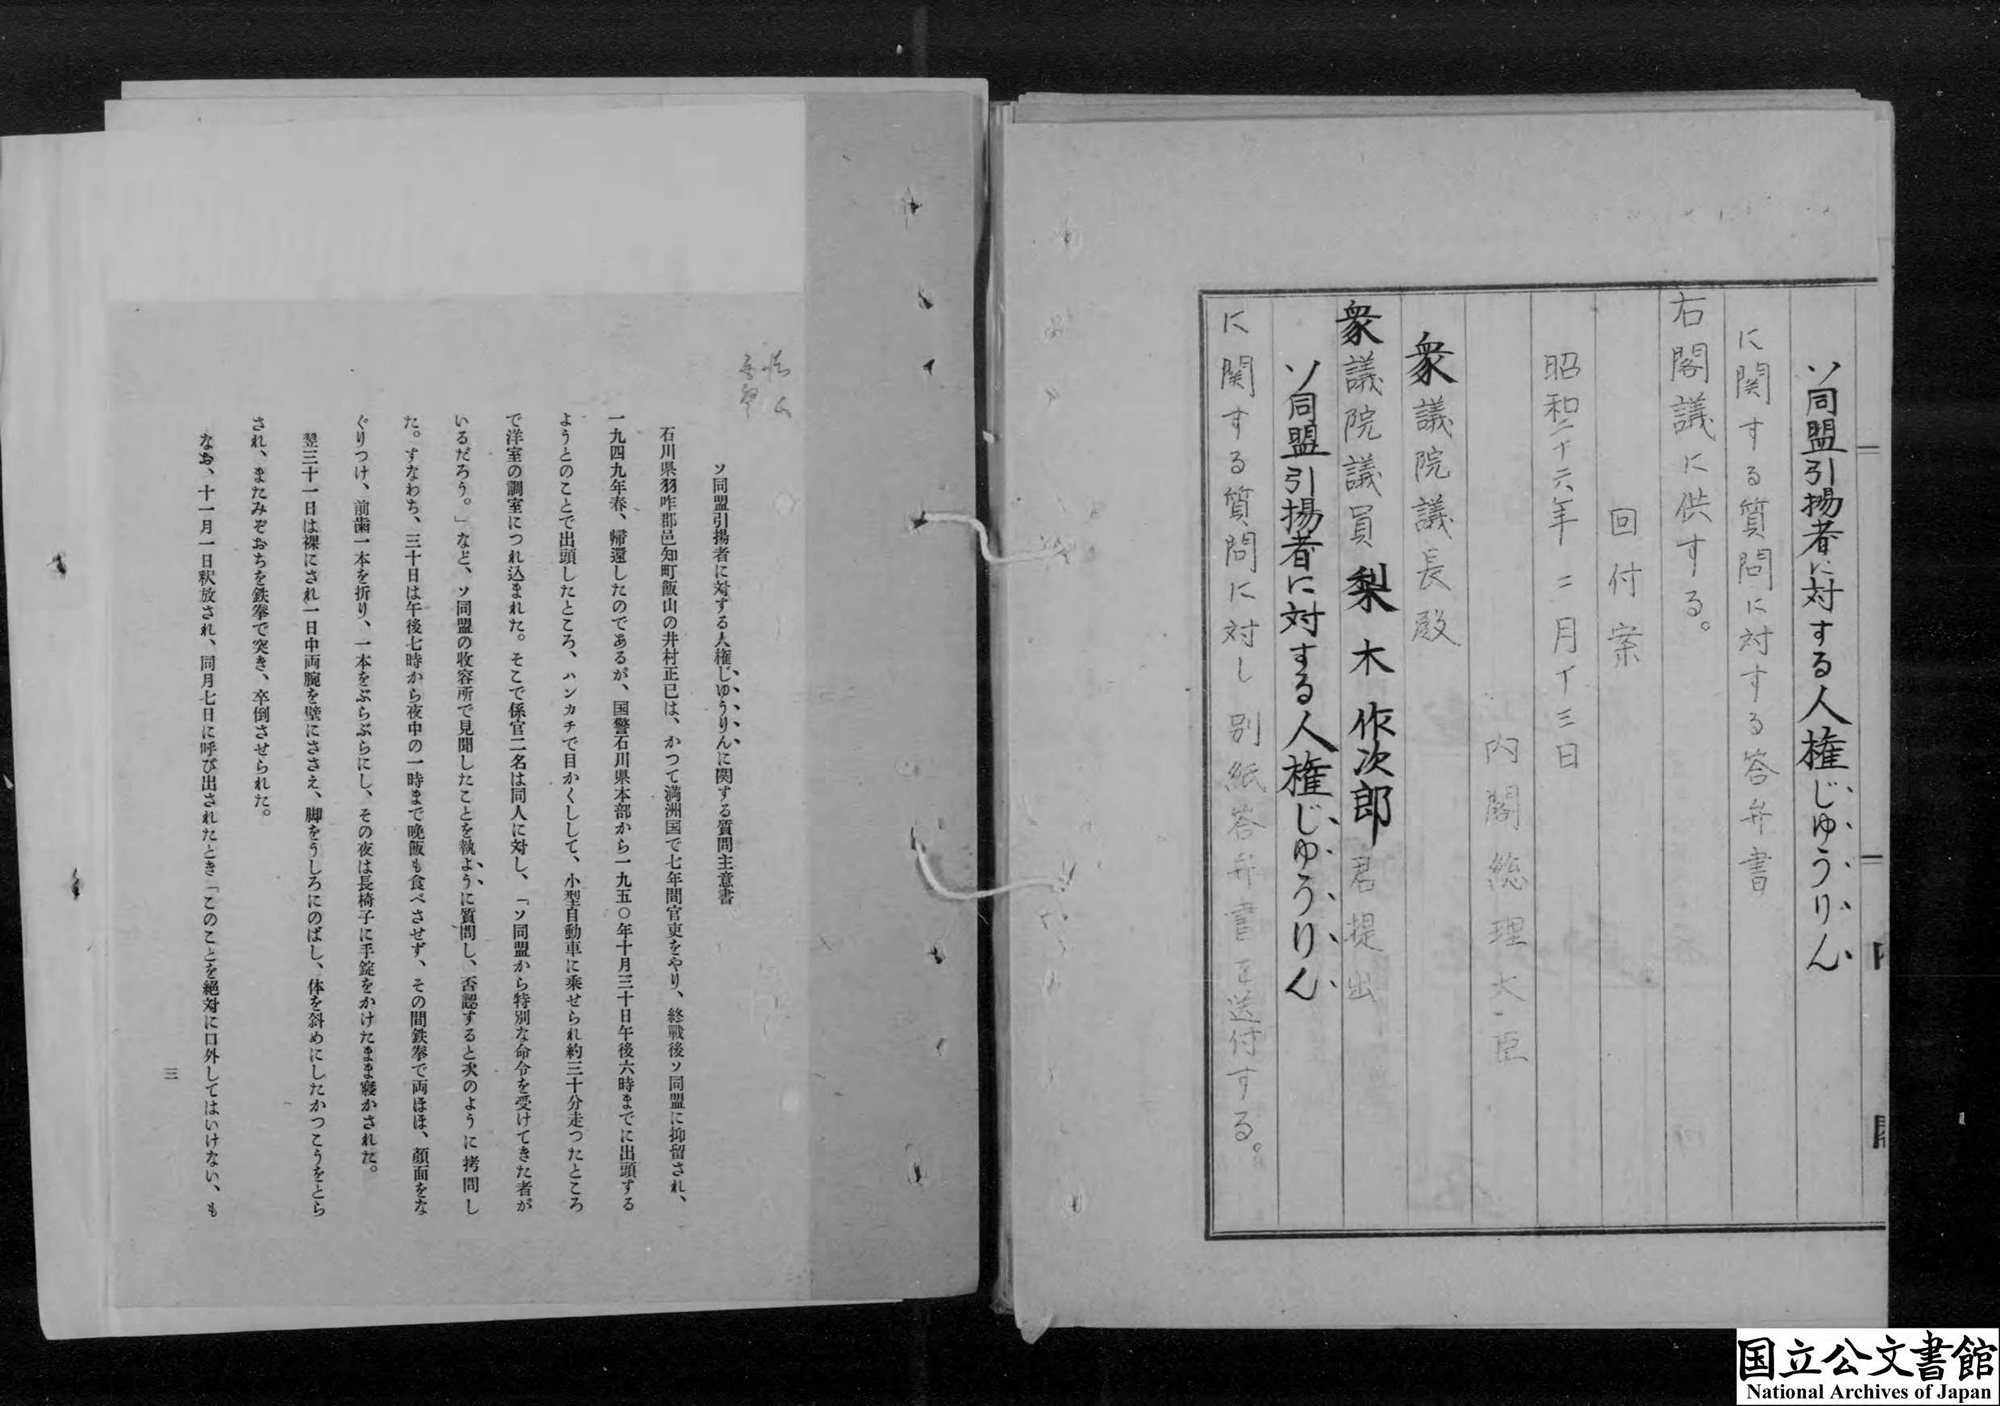 ソ同盟引揚者に対する人権じゆうりん
に関する質問に対する答弁書
右閣議に供する。
回付案
昭和二十六年二月十三日
内閣総理大臣
衆議院議長殿
衆議院議員梨木作次郎君提出
ソ同盟引揚者に対する人権じゆうりん
に関する質問に対し別紙答弁書を送付する。
ソ同盟引揚者に対する人権じゆうりんに関する質問主意書
石川県羽咋郡邑知町飯山の井村正已は、かつて満洲国で七年間官吏をやり、終戰後ソ同盟に抑留され、
一九四九年春、帰還したのであるが、国警石川県本部から一九五〇年十月三十日午後六時までに出頭する
ようとのことで出頭したところ、ハンカチで目かくしして、小型自動車に乘せられ約三十分走つたところ
で洋室の調室につれ込まれた。そこで係官二名は同人に対し、「ソ同盟から特別な命令を受けてきた者が
いるだろう。」など、ソ同盟の收容所で見聞したことを執ように質問し、否認すると次のように拷問し
た。すなわち、三十日は午後七時から夜中の一時まで晩飯も食べさせず、その間鉄拳で両ほほ、顔面をな
ぐりつけ、前歯一本を折り、一本をぶらぶらにし、その夜は長椅子に手錠をかけたまま寝かされた。
翌三十一日は裸にされ一日中両腕を壁にささえ、脚をうしろにのばし、体を斜めにしたかつこうをとら
され、またみぞおちを鉄拳で突き、卒倒させられた。
なお、十一月一日釈放され、同月七日に呼び出されたとき「このことを絶対に口外してはいけない、も
三
国立公文書館
National Archives of Japan